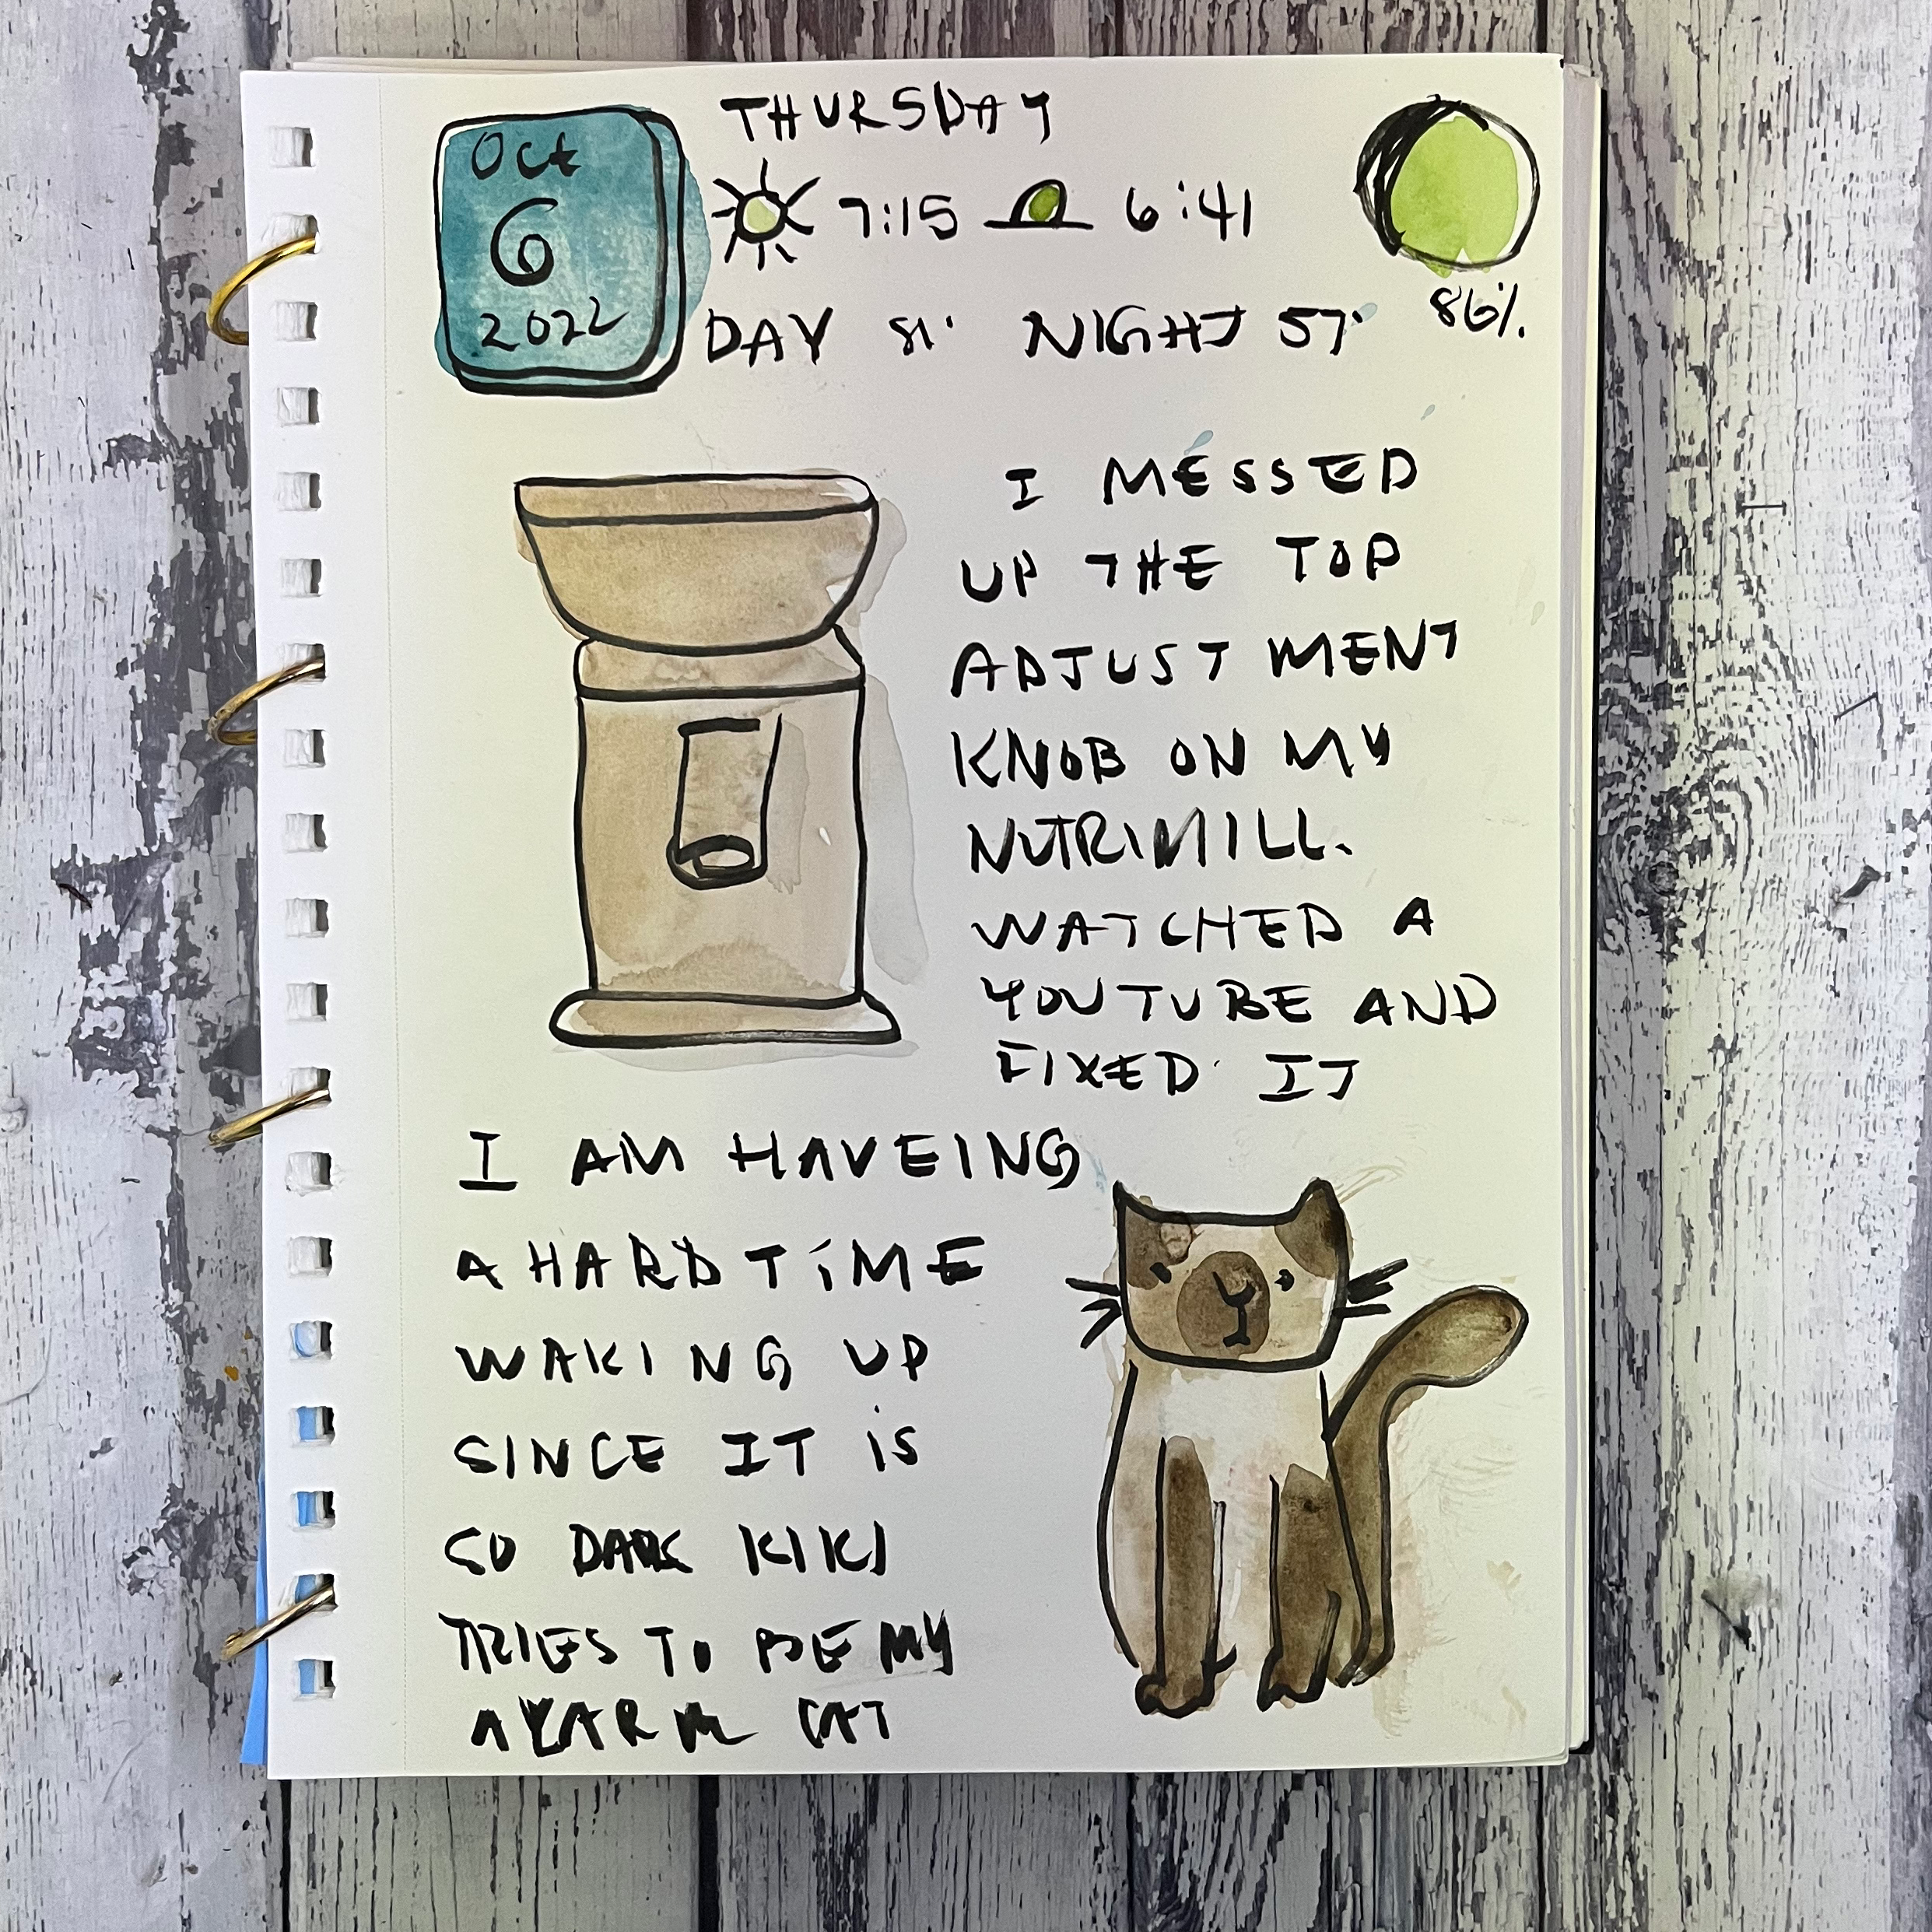 Oct
6
2022
THURSDAY
7:15 6:41
DAY 81° NIGHT 57°
86%
I MESSED
UP THE TOP
ADJUSTMENT
KNOB ON MY
NUTRIMILL.
WATCHED A
YOUTUBE AND
FIXED IT
I AM HAVEING
A HARD TIME
WAKING UP
SINCE IT IS
SO DARK KIKI
TRIES TO BE MY
ALARM CAT